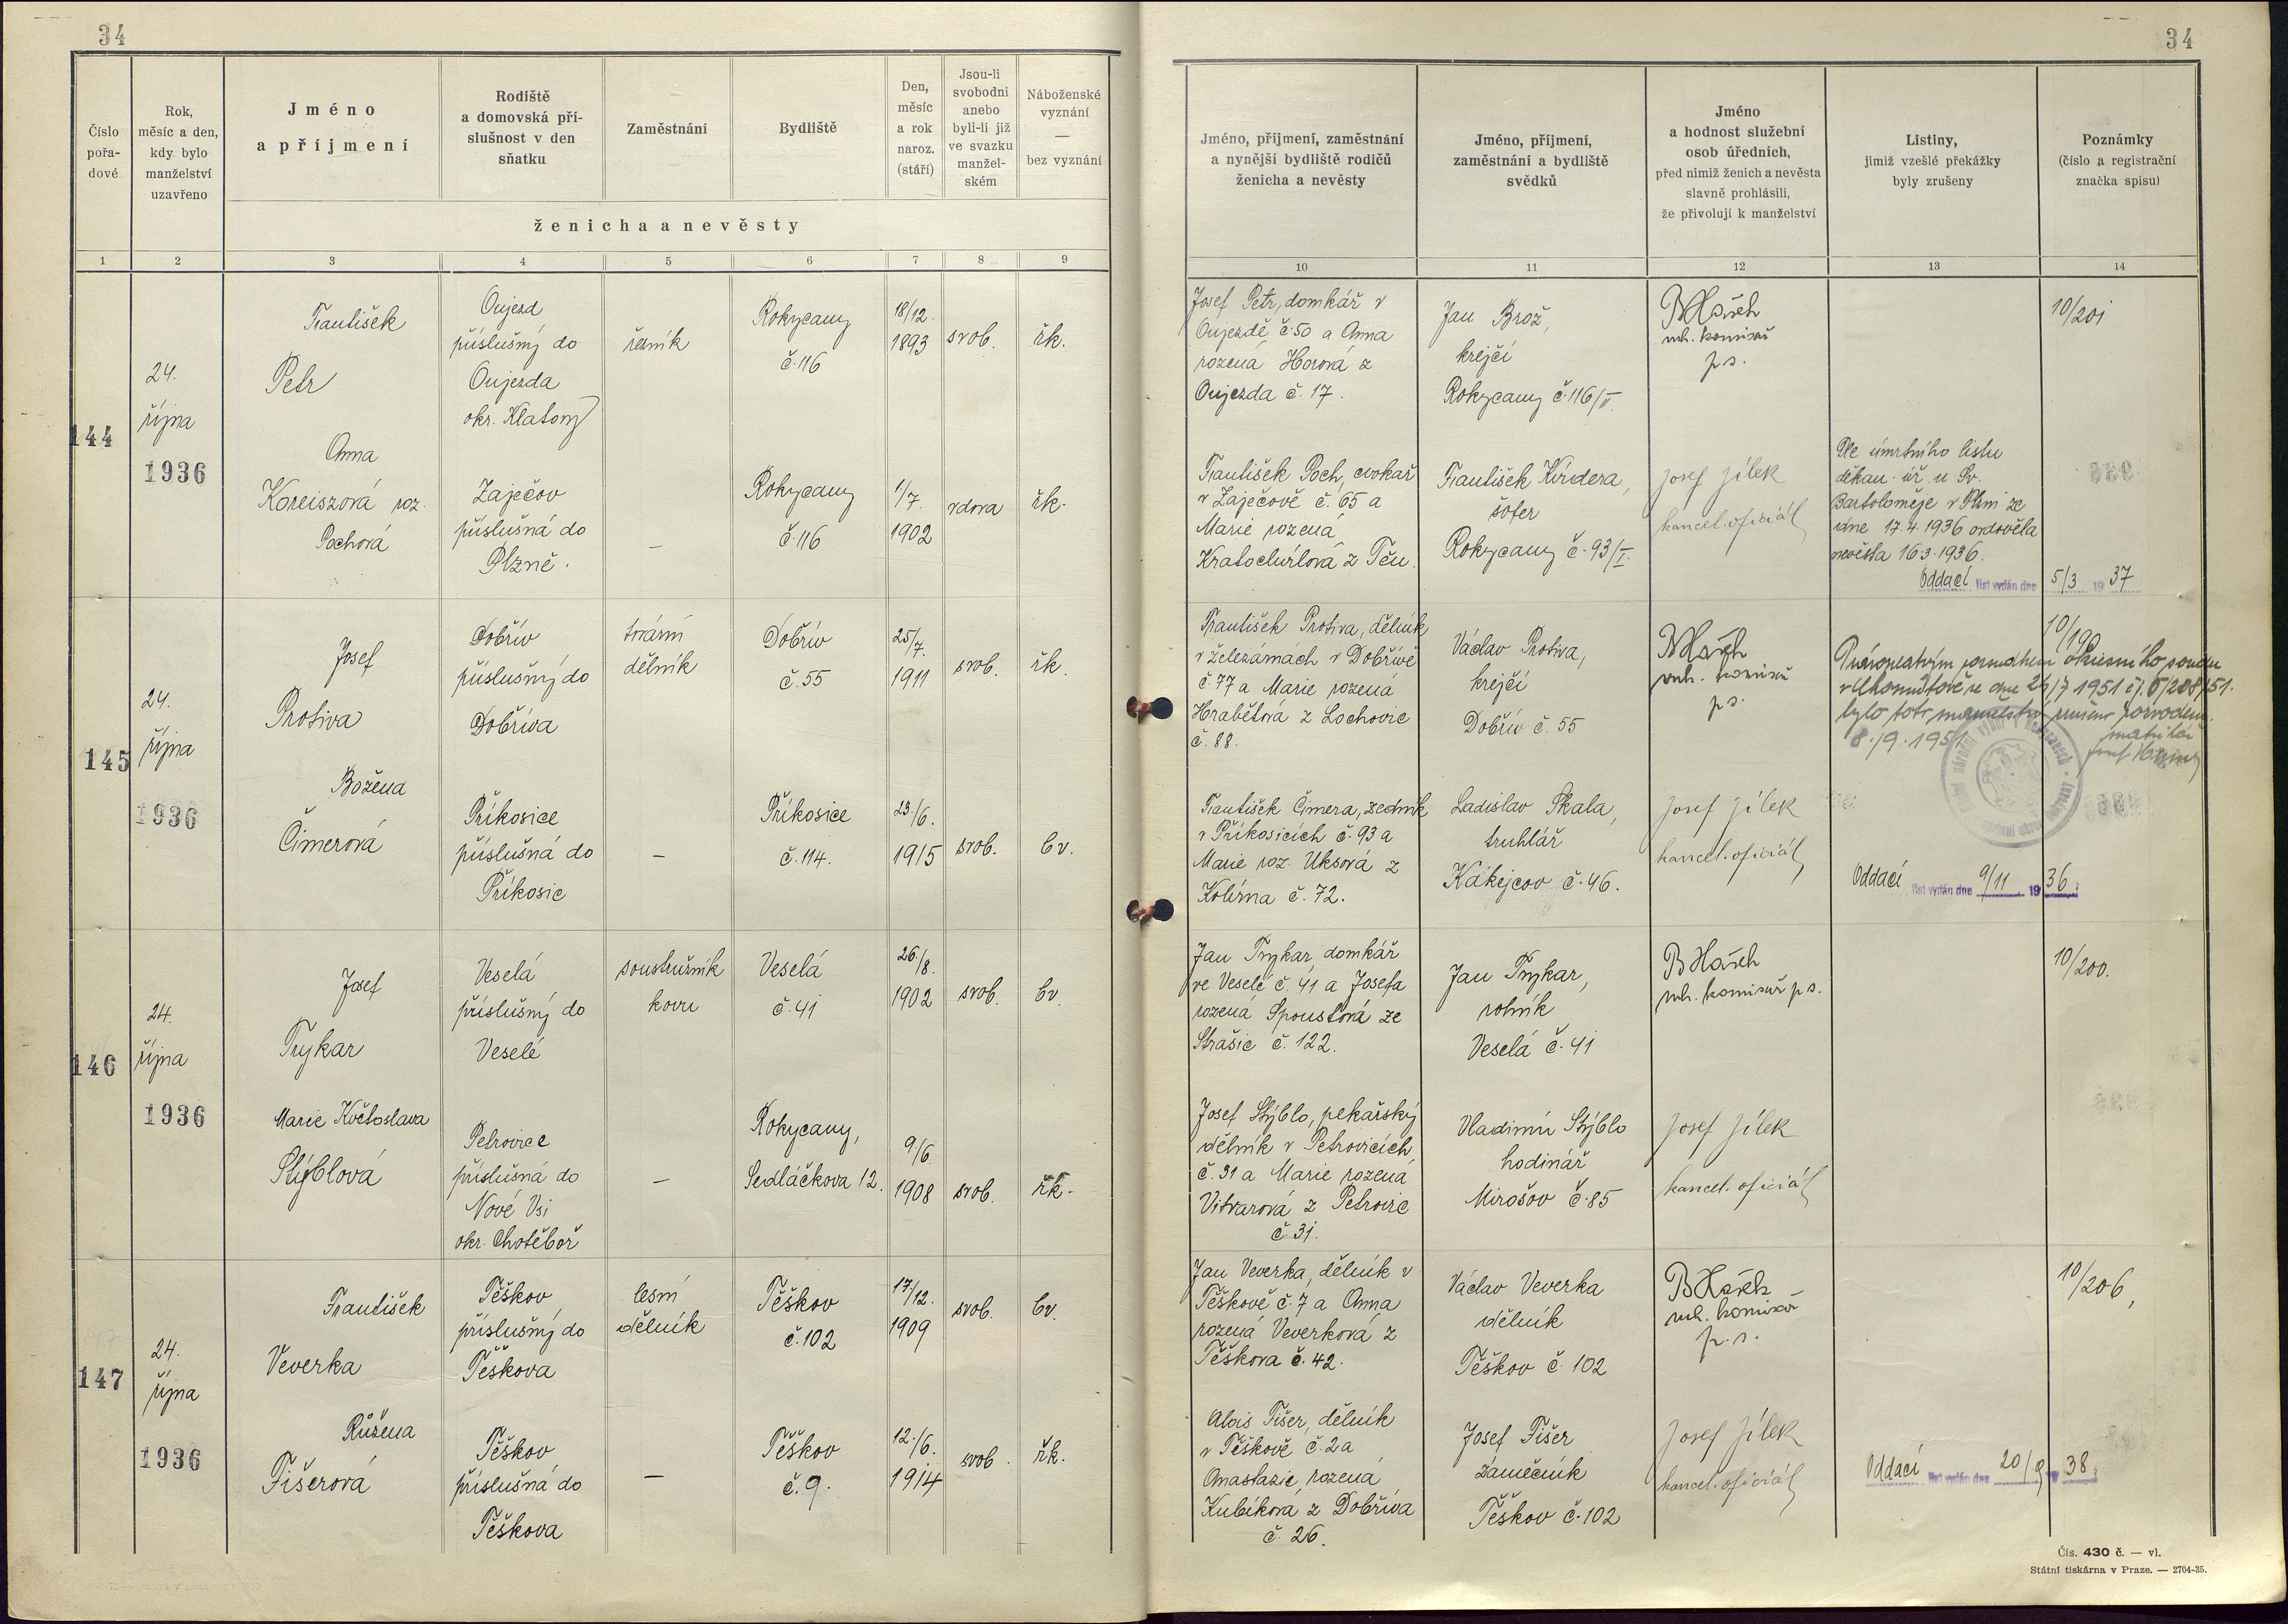 34
34
Číslo pořa-dové
Rok, měsíc a den, kdy bylo manželství uzavřeno
Jméno a příjmení
Rodiště a domovská pří-slušnost v den sňatku
Zaměstnání
Bydliště
Den, měsíc a rok naroz. (stáří)
Jsou-li svobodni anebo byli-li již ve svazku manžel-ském
Náboženské vyznání — bez vyznání
ženicha a nevěsty
Jméno, příjmení, zaměstnání a nynější bydliště rodičů ženicha a nevěsty
Jméno, příjmení, zaměstnání a bydliště svědků
Jméno a hodnost služební osob úředních, před nimiž ženich a nevěsta slavně prohlásili, že přivolují k manželství
Listiny, jimiž vzešlé překážky byly zrušeny
Poznámky (číslo a registrační značka spisu)
1 2 3 4 5 6 7 8 9 10 11 12 13 14
144
24.
října
1936
František
Petr
Oujezd
příslušný do
Oujezda
okr. Klatovy
řezník
Rokycany
č. 116
18/12.
1893
svob.
řk.
Josef Petr, domkář v
Oujezdě č. 50 a Anna
rozená Horová z
Oujezda č. 17.
Jan Brož,
krejčí
Rokycany č. 116/V.
BHašek
rch. komisař
p.s.
10/201
Anna
Koreiszová roz.
Pochová
Zaječov
příslušná do
Plzně.
—
Rokycany
č. 116
1/7.
1902
vdova
řk.
František Poch, cvokař
v Zaječově č. 65 a
Marie rozená
Kratochvílová z Těn.
František Kindera,
šofer
Rokycany č. 93/I.
Josef Jílek
kancel. oficiál
Dle úmrtního listu
děkan. úř. u Sv.
Bartoloměje v Plzni ze
dne 17.4.1936 ovdověla
nevěsta 16.3.1936.
Oddací list vydán dne 5/3 1937
145
24.
října
1936
Josef
Protiva
Dobřív
příslušný do
Dobříva
tovární
dělník
Dobřív
č. 55
25/7.
1911
svob.
řk.
František Protiva, dělník
v železárnách v Dobřívě
č. 77 a Marie rozená
Hrabětová z Lochovic
č. 88.
Václav Protiva,
krejčí
Dobřív č. 55
BHašek
rch. komisař
p.s.
10/199
Pravoplatným rozsudkem okresního soudu
v Chomutově ze dne 26/7 1951 čj. 5/208/51.
bylo toto manželství zrušeno rozvodem.
8./9. 1951
matrikář
Božena
Čimerová
Příkosice
příslušná do
Příkosic
—
Příkosice
č. 114.
23./6.
1915
svob.
bv.
František Čimera, zedník
v Příkosicích č. 93 a
Marie roz. Uksová z
Kolvína č. 72.
Ladislav Skala,
truhlář
Kakejcov č. 46.
Josef Jílek
kancel. oficiál
Oddací list vydán dne 9/11 1936
146
24.
října
1936
Josef
Trykar
Veselá
příslušný do
Veselé
soustružník
kovu
Veselá
č. 41
26./8.
1902
svob.
bv.
Jan Trykar, domkář
ve Veselé č. 41 a Josefa
rozená Spoustová ze
Strašic č. 122.
Jan Trykar,
rolník
Veselá č. 41
BHašek
rch. komisař p.s.
10/200.
Marie Květoslava
Stýblová
Petrovice
příslušná do
Nové Vsi
okr. Chotěboř
—
Rokycany,
Sedláčkova 12.
9/6
1908
svob.
řk.
Josef Stýblo, pekařský
dělník v Petrovicích,
č. 31 a Marie rozená
Vitvarová z Petrovic
č. 31.
Vladimír Stýblo
hodinář
Mirošov č. 85
Josef Jílek
kancel. oficiál
147
24.
října
1936
František
Veverka
Těškov
příslušný do
Těškova
lesní
dělník
Těškov
č. 102
17/12.
1909
svob.
bv.
Jan Veverka, dělník v
Těškově č. 7 a Anna
rozená Veverková z
Těškova č. 42.
Václav Veverka
dělník
Těškov č. 102
BHašek
rch. komisař
p.s.
10/206,
Růžena
Fišerová
Těškov
příslušná do
Těškova
—
Těškov
č. 9.
12./6.
1914
svob.
řk.
Alois Fišer, dělník
v Těškově č. 2 a
Anastazie, rozená
Kubíková z Dobříva
č. 26.
Josef Fišer
zámečník
Těškov č. 102
Josef Jílek
kancel. oficiál
Oddací list vydán dne 20/9 1938
Čís. 430 č. — vl.
Státní tiskárna v Praze. — 2704-35.